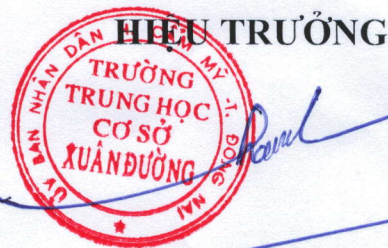 HIỆU TRƯỞNG
ỦY BAN NHÂN DÂN H. CẨM MỸ -T. ĐỒNG NAI
TRƯỜNG
TRUNG HỌC
CƠ SỞ
XUÂN ĐƯỜNG